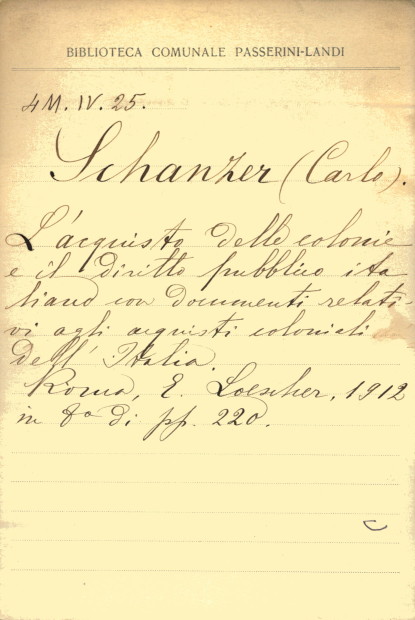 BIBLIOTECA COMUNALE PASSERINI-LANDI
4M. IV. 25.
Schanzer (Carlo).
L'acquisto delle colonie
e il diritto pubblico ita
liano con documenti relati-
vi agli acquisti coloniali
dell' Italia.
Roma, E. Loescher, 1912
in 8° di pp. 220.